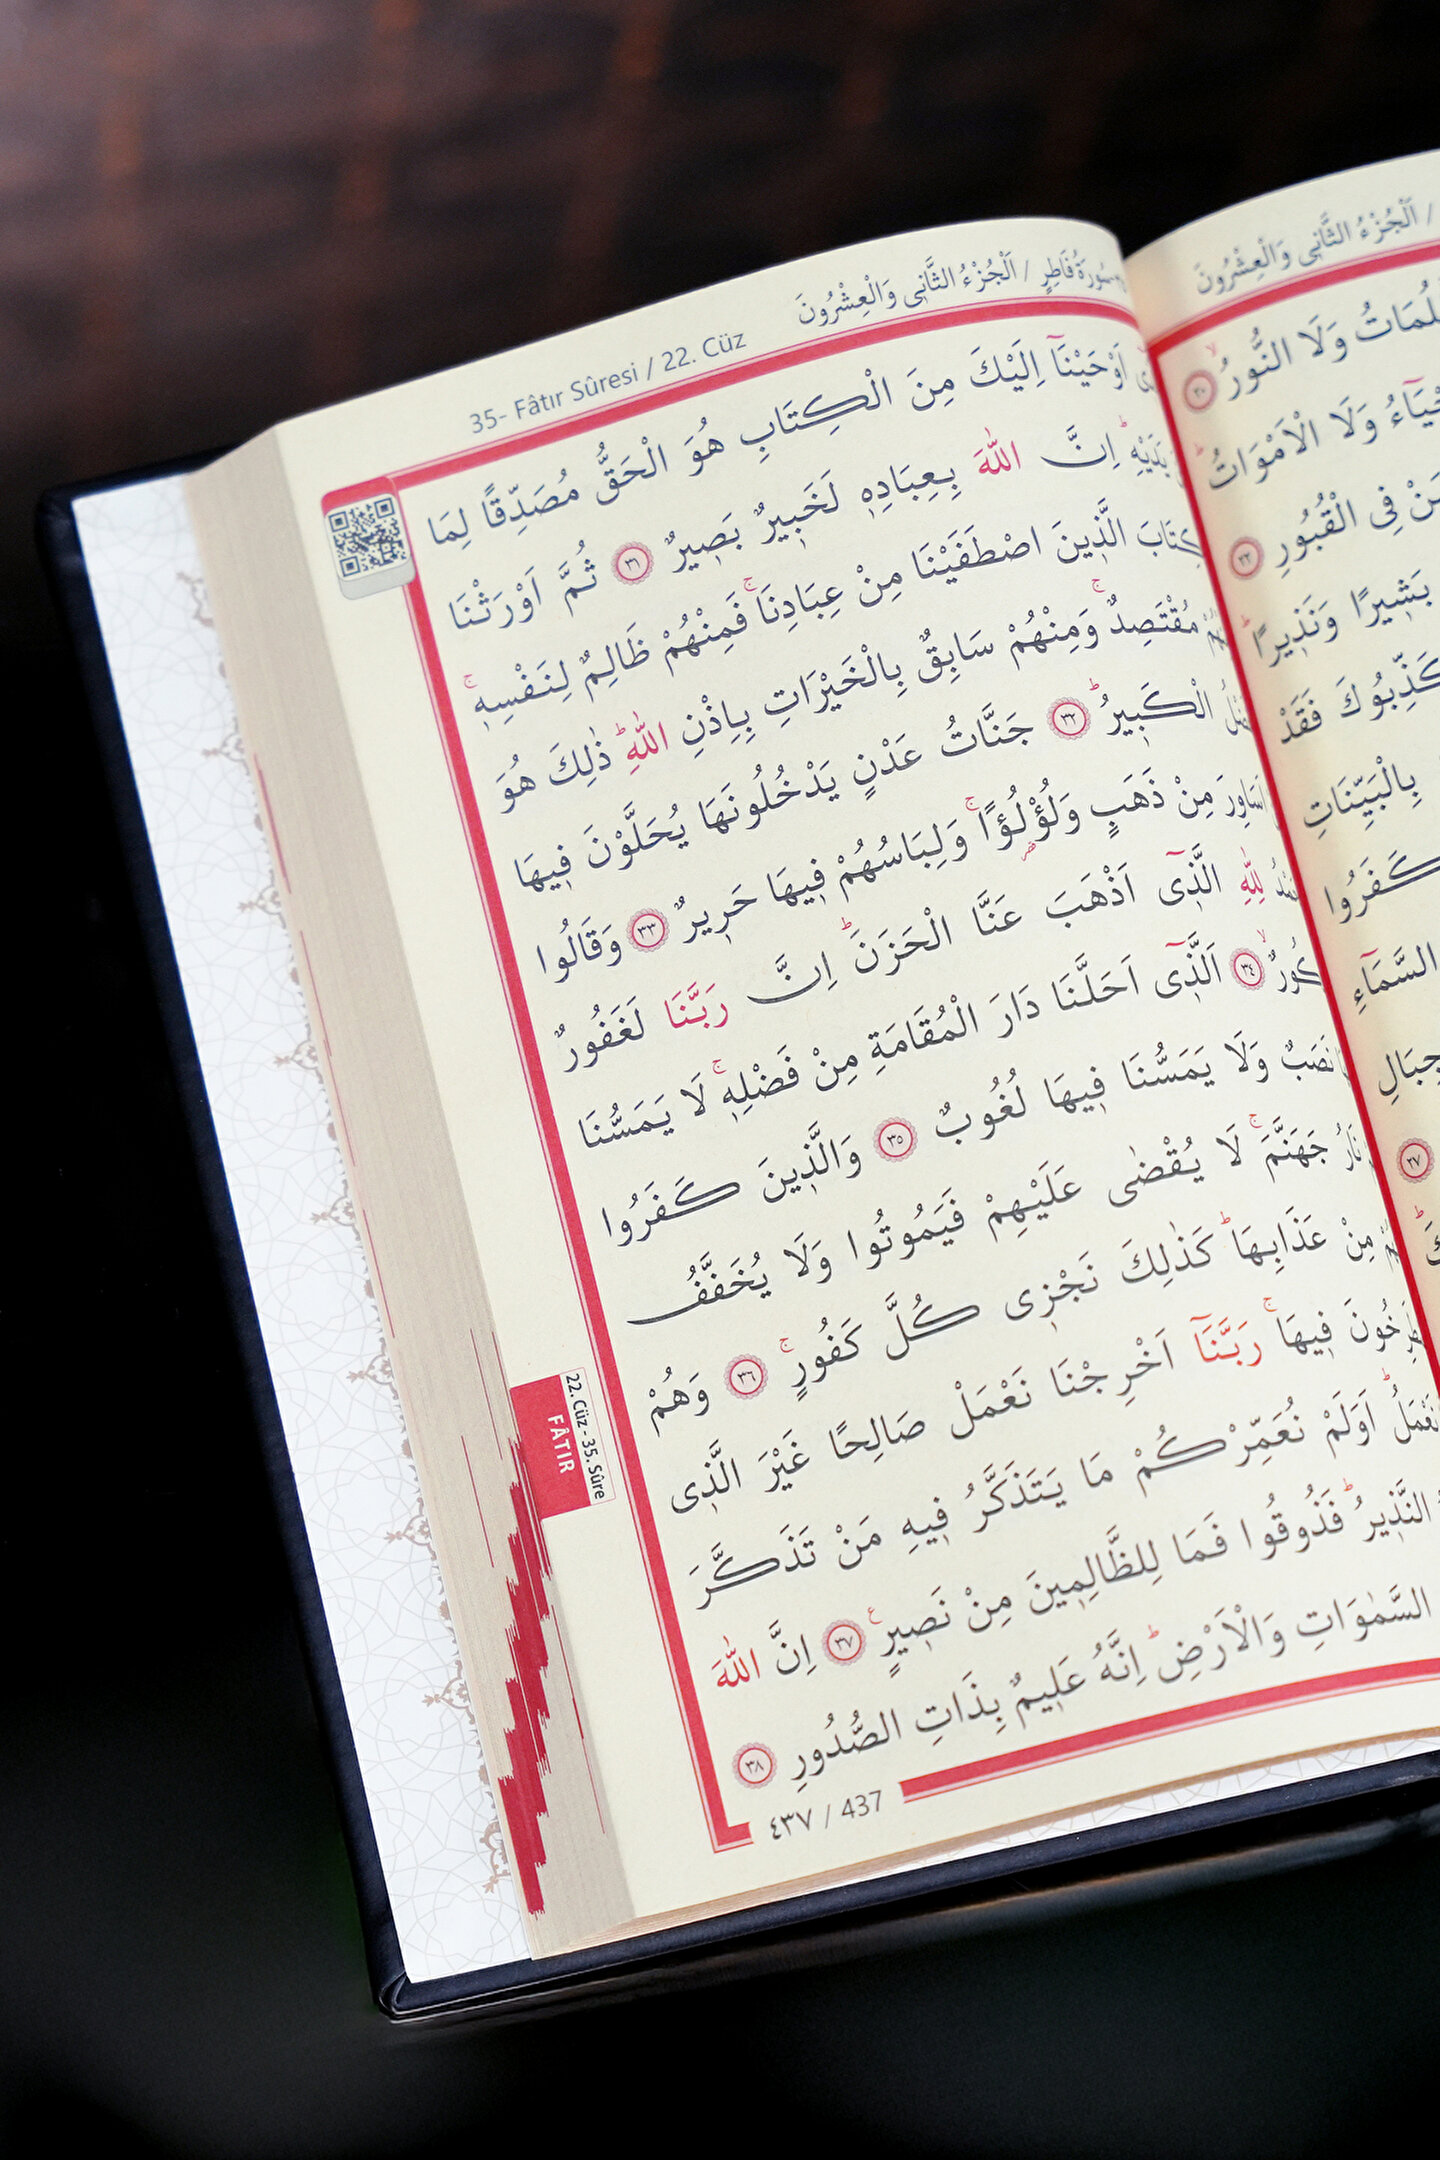 35- Fâtır Sûresi / 22. Cüz
سُورَةُ فَاطِرٍ / اَلْجُزْءُ الثَّانِى وَالْعِشْرُونَ
اَوْحَيْنَٓا اِلَيْكَ مِنَ الْكِتَابِ هُوَ الْحَقُّ مُصَدِّقًا لِمَا
يَدَيْهِۜ اِنَّ اللّٰهَ بِعِبَادِه۪ لَخَب۪يرٌ بَص۪يرٌ ﴿٣١﴾ ثُمَّ اَوْرَثْنَا
الَّذ۪ينَ اصْطَفَيْنَا مِنْ عِبَادِنَاۚ فَمِنْهُمْ ظَالِمٌ لِنَفْسِه۪ۚ
مُقْتَصِدٌۚ وَمِنْهُمْ سَابِقٌ بِالْخَيْرَاتِ بِاِذْنِ اللّٰهِۜ ذٰلِكَ هُوَ
الْكَب۪يرُۜ ﴿٣٢﴾ جَنَّاتُ عَدْنٍ يَدْخُلُونَهَا يُحَلَّوْنَ ف۪يهَا
اَسَاوِرَ مِنْ ذَهَبٍ وَلُؤْلُؤًاۚ وَلِبَاسُهُمْ ف۪يهَا حَر۪يرٌ ﴿٣٣﴾ وَقَالُوا
لِلّٰهِ الَّذ۪ٓى اَذْهَبَ عَنَّا الْحَزَنَۜ اِنَّ رَبَّنَا لَغَفُورٌ
﴿٣٤﴾ اَلَّذ۪ٓى اَحَلَّنَا دَارَ الْمُقَامَةِ مِنْ فَضْلِه۪ۚ لَا يَمَسُّنَا
نَصَبٌ وَلَا يَمَسُّنَا ف۪يهَا لُغُوبٌ ﴿٣٥﴾ وَالَّذ۪ينَ كَفَرُوا
نَارُ جَهَنَّمَۚ لَا يُقْضٰى عَلَيْهِمْ فَيَمُوتُوا وَلَا يُخَفَّفُ
مِنْ عَذَابِهَاۜ كَذٰلِكَ نَجْز۪ى كُلَّ كَفُورٍۚ ﴿٣٦﴾ وَهُمْ
ف۪يهَاۚ رَبَّنَٓا اَخْرِجْنَا نَعْمَلْ صَالِحًا غَيْرَ الَّذ۪ى
نَعْمَلُۜ اَوَلَمْ نُعَمِّرْكُمْ مَا يَتَذَكَّرُ ف۪يهِ مَنْ تَذَكَّرَ
النَّذ۪يرُۜ فَذُوقُوا فَمَا لِلظَّالِم۪ينَ مِنْ نَص۪يرٍ ﴿٣٧﴾ اِنَّ اللّٰهَ
السَّمٰوَاتِ وَالْاَرْضِۜ اِنَّهُ عَل۪يمٌ بِذَاتِ الصُّدُورِ ﴿٣٨﴾
٤٣٧ / 437
22. Cüz - 35. Sûre
FÂTIR
/ اَلْجُزْءُ الثَّانِى وَالْعِشْرُونَ
وَلَا النُّورُۙ ﴿٢٠﴾
وَلَا الْاَمْوَاتُۜ
فِى الْقُبُورِ ﴿٢٢﴾
بَش۪يرًا وَنَذ۪يرًاۜ
فَقَدْ
بِالْبَيِّنَاتِ
كَفَرُوا
السَّمَٓاءِ
﴿٢٧﴾